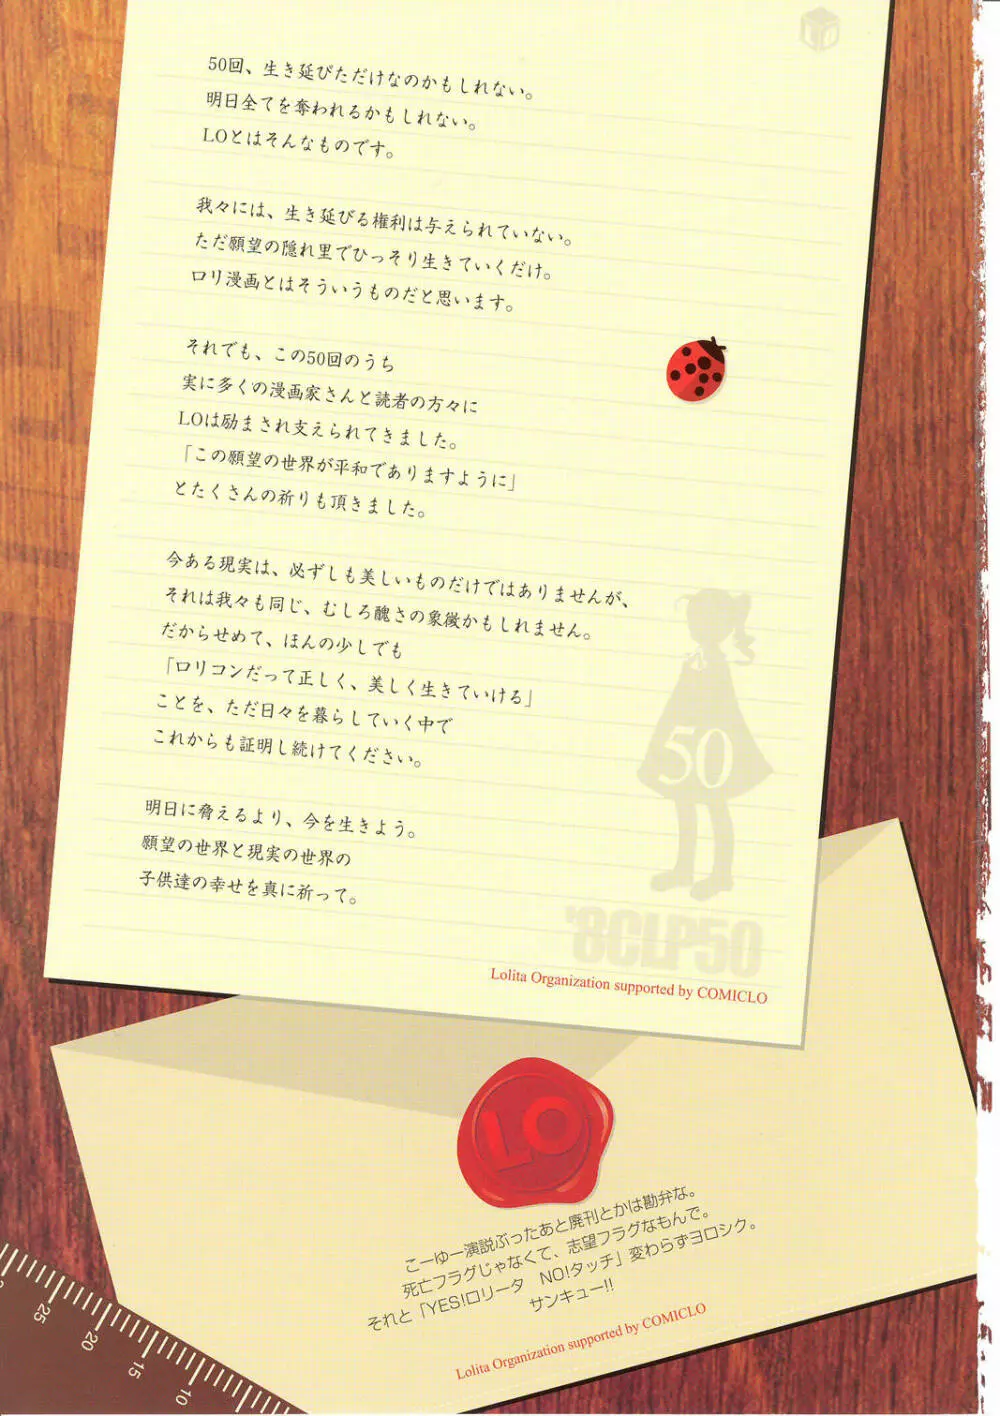 LO
50回、生き延びただけなのかもしれない。
明日全てを奪われるかもしれない。
LOとはそんなものです。
我々には、生き延びる権利は与えられていない。
ただ願望の隠れ里でひっそり生きていくだけ。
ロリ漫画とはそういうものだと思います。
それでも、この50回のうち
実に多くの漫画家さんと読者の方々に
LOは励まされ支えられてきました。
「この願望の世界が平和でありますように」
とたくさんの祈りも頂きました。
今ある現実は、必ずしも美しいものだけではありませんが、
それは我々も同じ、むしろ醜さの象徴かもしれません。
だからせめて、ほんの少しでも
「ロリコンだって正しく、美しく生きていける」
ことを、ただ日々を暮らしていく中で
これからも証明し続けてください。
明日に脅えるより、今を生きよう。
願望の世界と現実の世界の
子供達の幸せを真に祈って。
50
'8CLP50
Lolita Organization supported by COMICLO
LO
こーゆー演説ぶったあと廃刊とかは勘弁な。
死亡フラグじゃなくて、志望フラグなもんで。
それと「YES!ロリータ NO!タッチ」変わらずヨロシク。
サンキュー!!
Lolita Organization supported by COMICLO
25
20
15
10